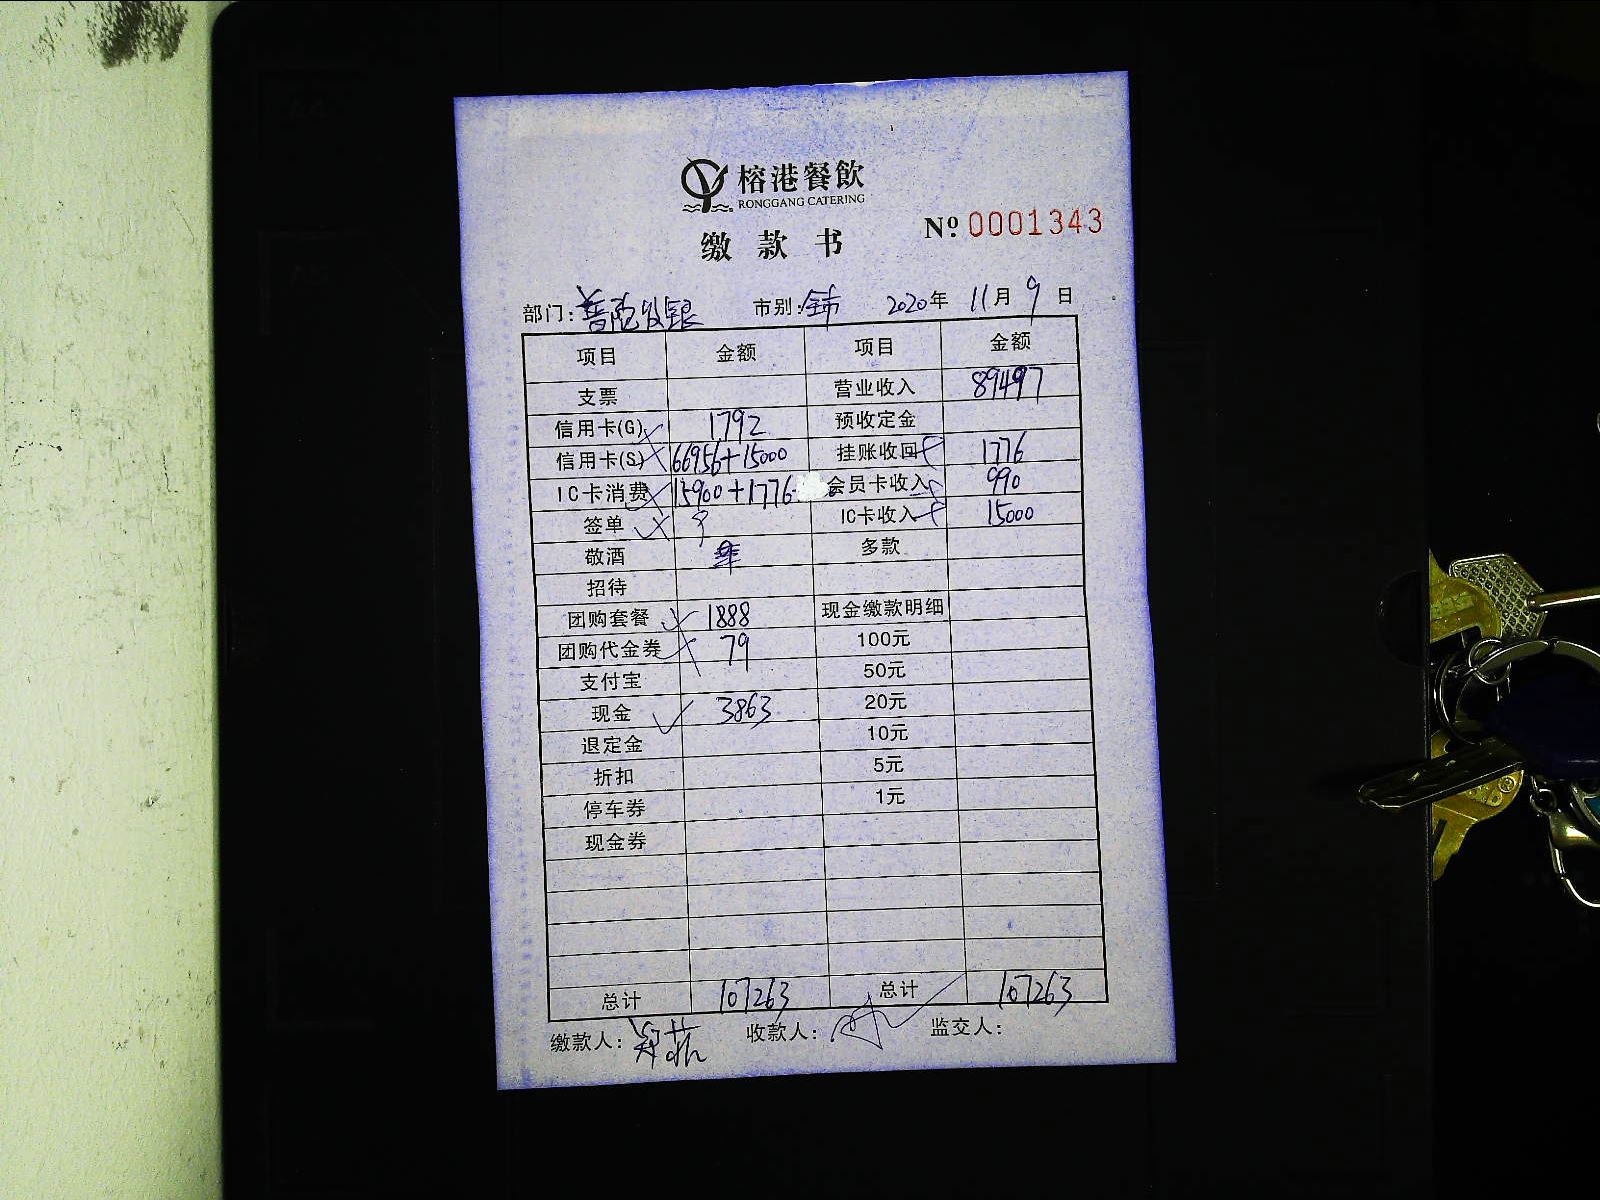 榕港餐飲
RONGGANG CATERING
缴款书
Nº 0001343
部门: 收银 市别: 2020年 11月 9日
项目 金额 项目 金额
支票 营业收入 89497
信用卡(G) 1792 预收定金
信用卡(S) 66956+15000 挂账收回 1776
IC卡消费 15900+1776 会员卡收入 990
签单 IC卡收入 15000
敬酒 多款
招待
团购套餐 1888 现金缴款明细
团购代金券 79 100元
支付宝 50元
现金 3863 20元
退定金 10元
折扣 5元
停车券 1元
现金券
总计 107263 总计 107263
缴款人: 收款人: 监交人: